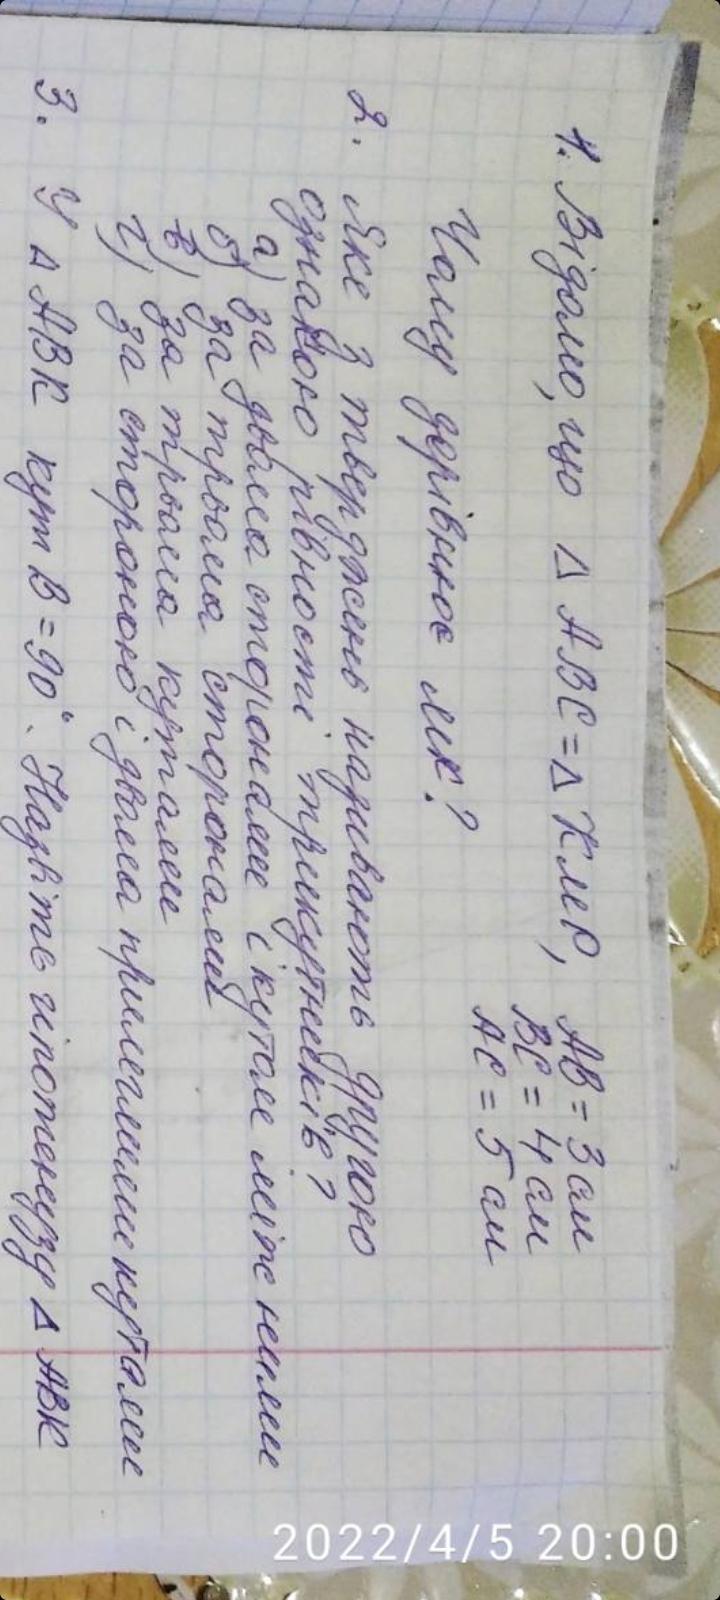 1. Відомо, що Δ ABC = Δ KMP, AB = 3 см
BC = 4 см
AC = 5 см
Чому дорівнює MK?
2. Яке з тверджень називають другою
ознакою рівності трикутників?
а) за двома сторонами і кутом між ними
б) за трьома сторонами
в) за трьома кутами
г) за стороною і двома прилеглими кутами
3. У Δ ABK кут B = 90°. Назвіть гіпотенузу Δ ABK
2022/4/5 20:00